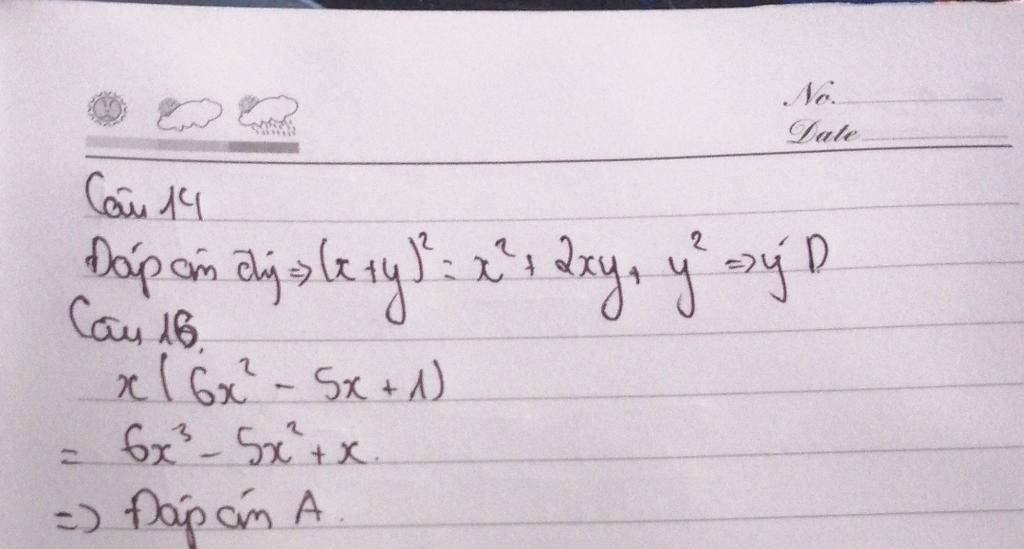 No.
Date
Câu 14
Đáp án đúng => (x+y)² = x² + 2xy + y² => ý D
Câu 16.
x(6x² - 5x + 1)
= 6x³ - 5x² + x.
=> Đáp án A.